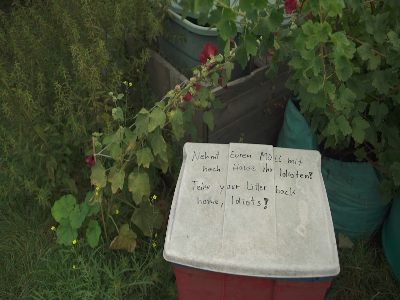 Nehmt Euren Müll mit
nach Hause Ihr Idioten!
Take your Litter back
home, Idiots!